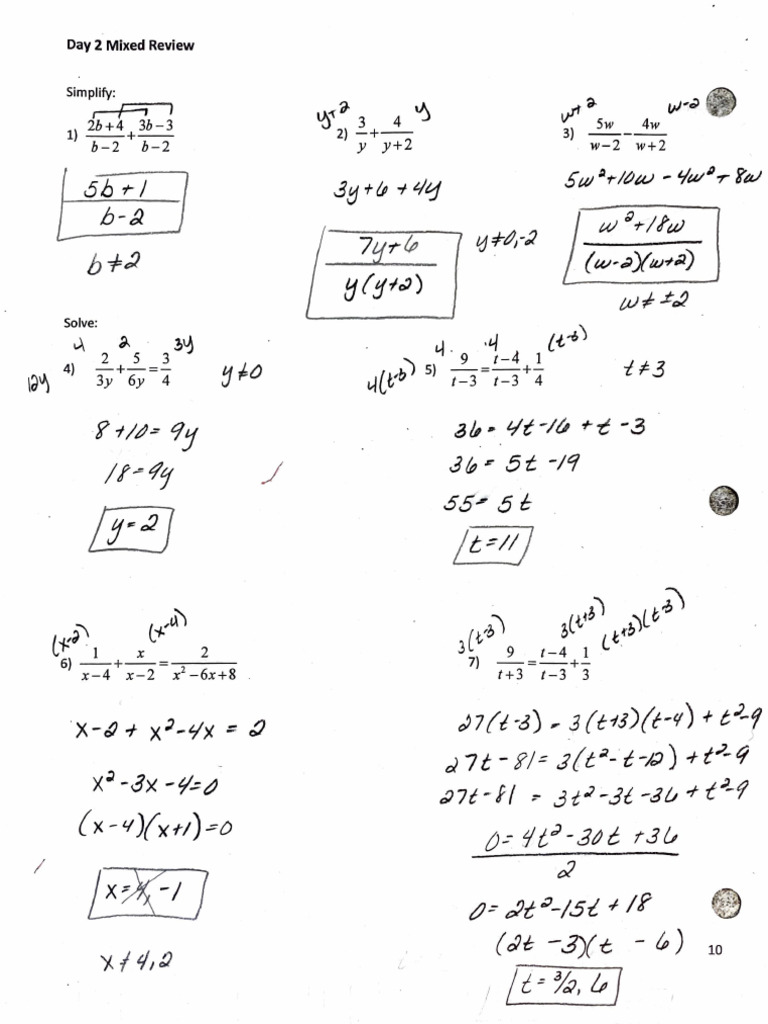 Day 2 Mixed Review
Simplify:
1) (2b+4)/(b−2) + (3b−3)/(b−2)
5b+1
b-2
b≠2
y+2 y
2) 3/y + 4/(y+2)
3y+6 +4y
7y+6
y(y+2)
y≠0,-2
w+2 w-2
3) 5w/(w−2) − 4w/(w+2)
5w²+10w - 4w²+8w
w²+18w
(w-2)(w+2)
w≠ ±2
Solve:
4 2 3y
12y 4) 2/(3y) + 5/(6y) = 3/4 y≠0
8+10= 9y
18=9y
y=2
4 4 (t-3)
4(t-3) 5) 9/(t−3) = (t−4)/(t−3) + 1/4 t≠3
36= 4t-16 + t -3
36= 5t -19
55= 5t
t=11
(x-2) (x-4)
6) 1/(x−4) + x/(x−2) = 2/(x²−6x+8)
x-2+ x²-4x = 2
x²-3x-4=0
(x-4)(x+1)=0
x=4, -1
x≠4,2
3(t-3) 3(t+3) (t+3)(t-3)
7) 9/(t+3) = (t−4)/(t−3) + 1/3
27(t-3)= 3(t+3)(t-4) + t²-9
27t-81= 3(t²-t-12) + t²-9
27t-81 = 3t²-3t-36 + t²-9
0=4t²-30t +36
2
0= 2t²-15t +18
(2t -3)(t -6)
t= 3/2, 6
10